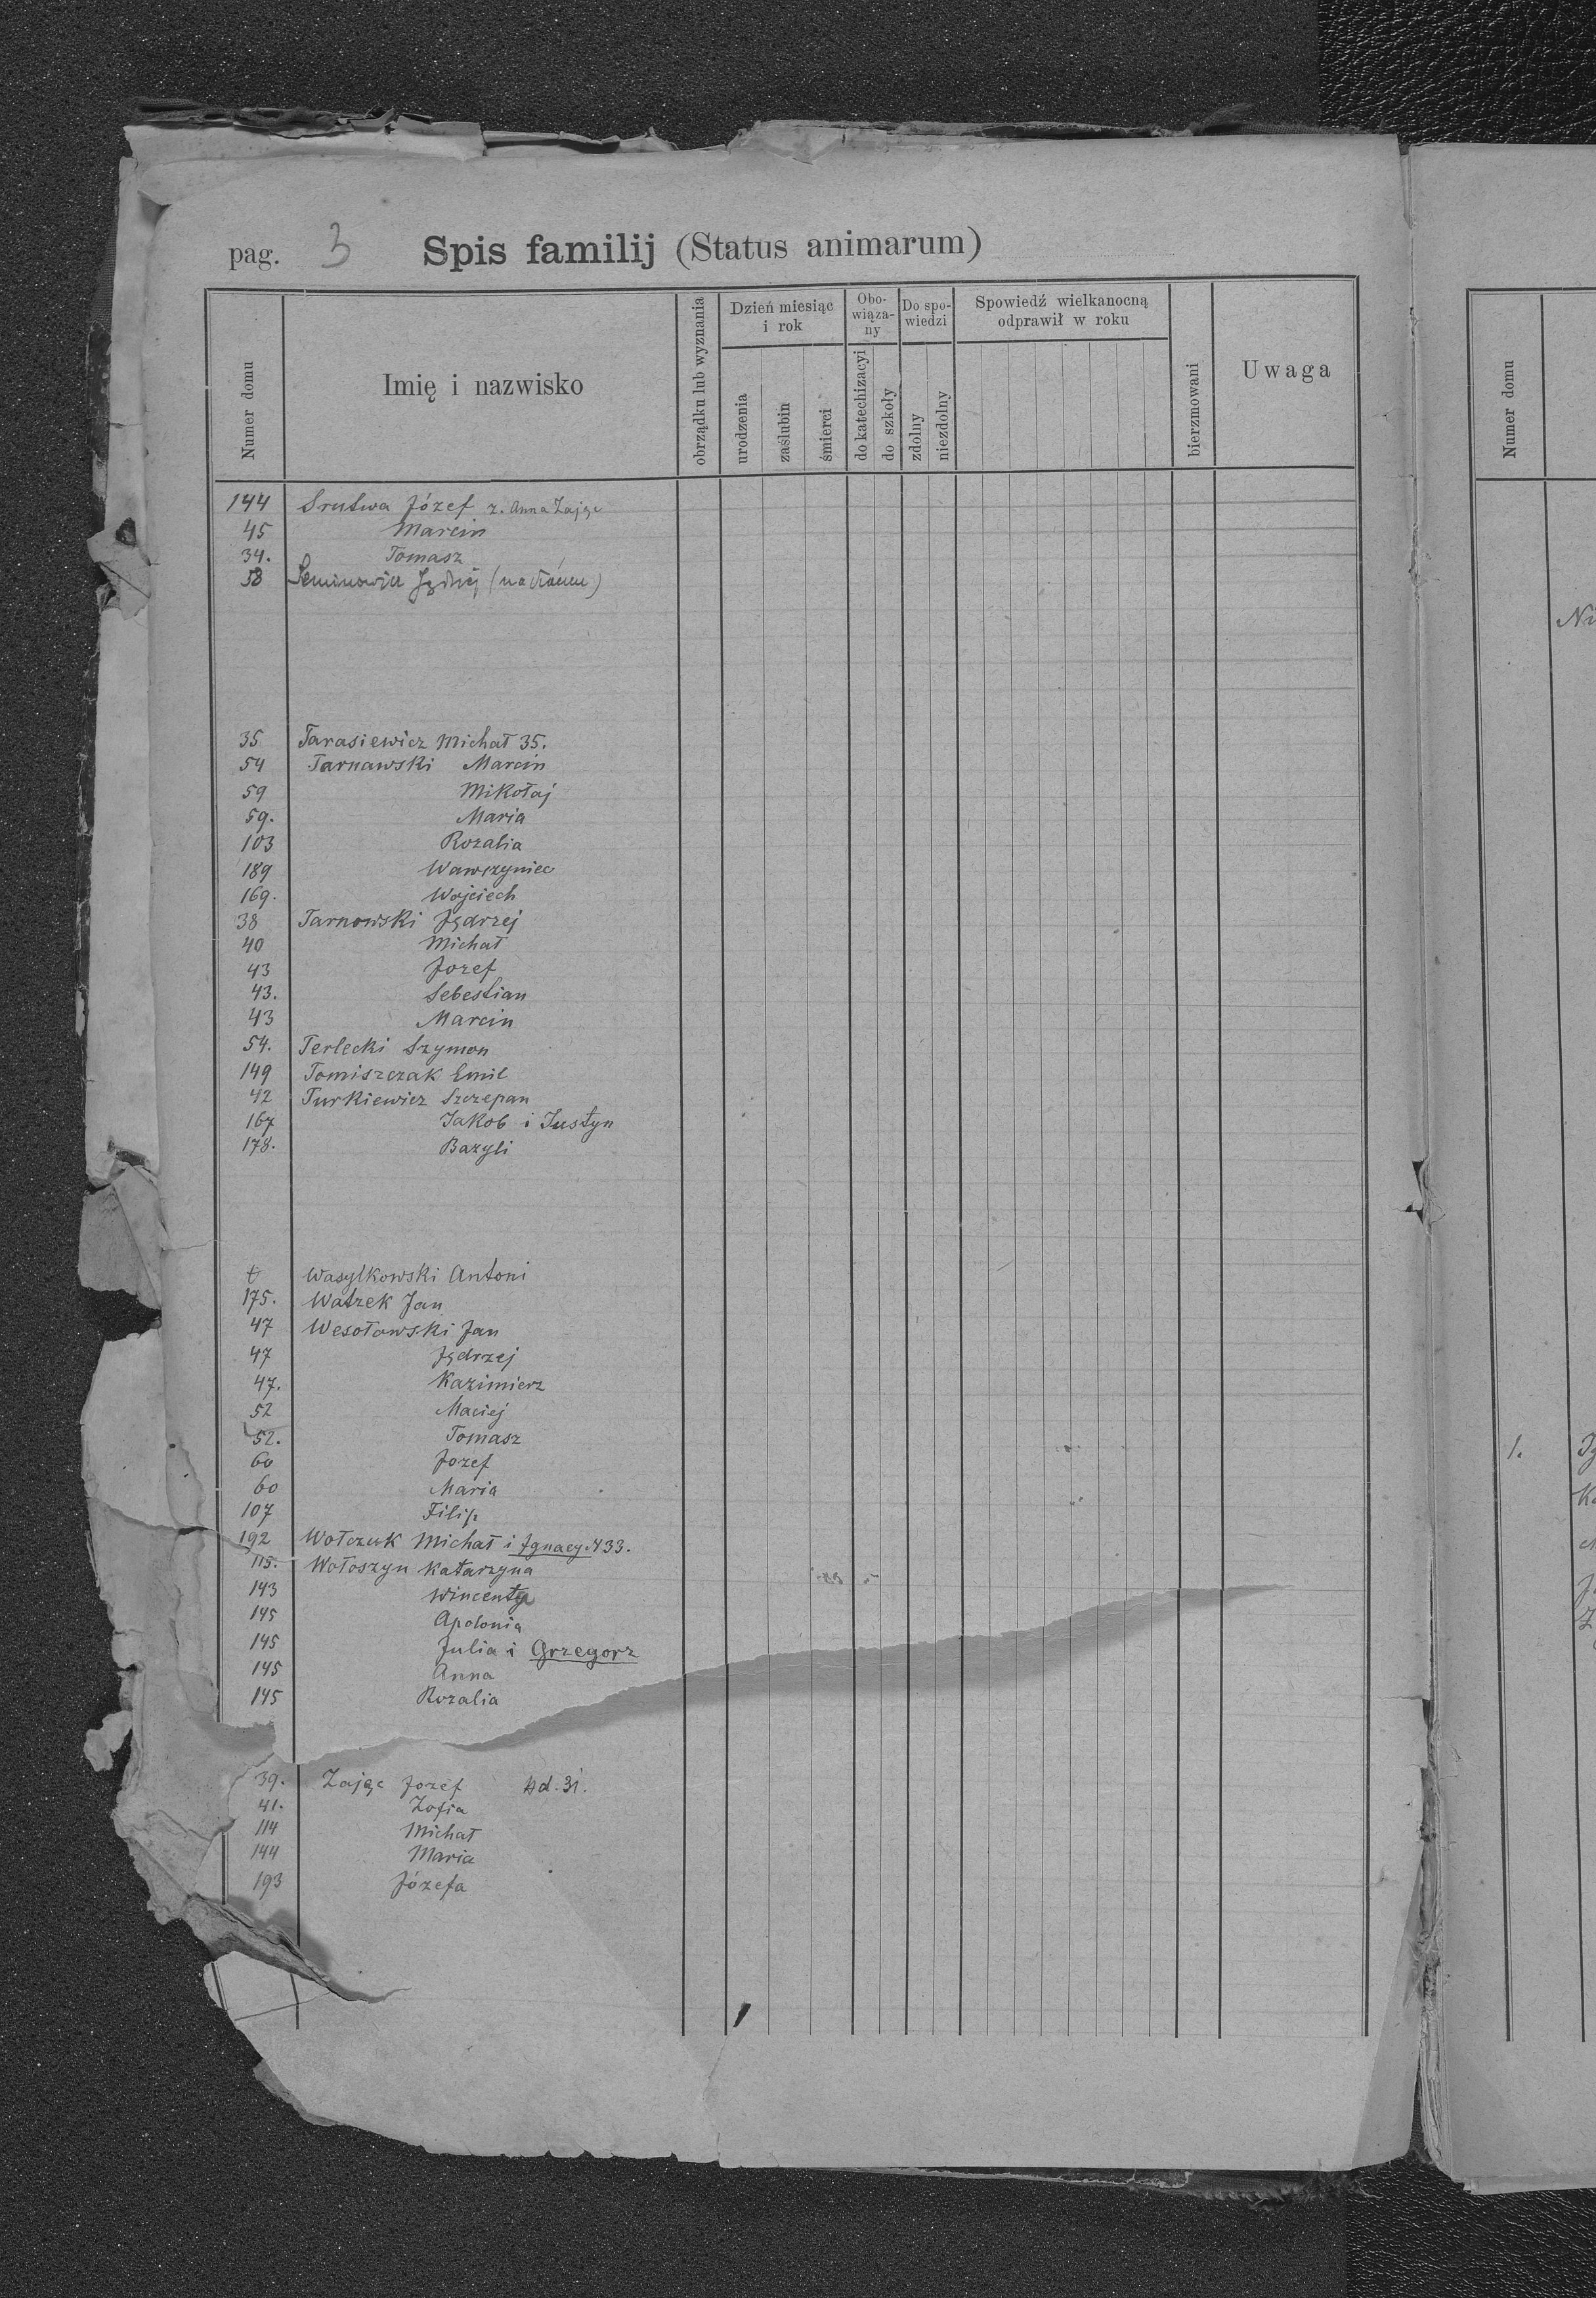 pag. 3 Spis familij (Status animarum)
Numer domu
Imię i nazwisko
obrządku lub wyznania
Dzień miesiąc i rok
urodzenia
zaślubin
śmierci
Obowiązany
do katechizacyi
do szkoły
Do spowiedzi
zdolny
niezdolny
Spowiedź wielkanocną odprawił w roku
bierzmowani
Uwaga
144 Srutwa Józef z. Anna Zając
45 Marcin
34. Tomasz
58 Jędrzej
35 Tarasiewicz Michał 35.
54 Tarnawski Marcin
59 Mikołaj
59. Maria
103 Rozalia
189 Wawrzyniec
169. Wojciech
38 Tarnowski Jędrzej
40 Michał
43 Jozef
43. Sebestian
43 Marcin
54. Terlecki Szymon
149 Tomiszczak Emil
42 Turkiewicz Szczepan
167 Jakob i Justyn
178. Bazyli
t Wasylkowski Antoni
175. Watzek Jan
47 Wesołowski Jan
47 Jędrzej
47. Kazimierz
52 Maciej
52. Tomasz
60 Jozef
60 Maria
107 Filip
192 Wołczuk Michał i Ignacy N 33.
115. Wołoszyn Katarzyna
143 Wincenty
145 Apolonia
145 Julia i Grzegorz
145 Anna
145 Rozalia
39. Zając Jozef Nd. 31.
41. Zofia
114 Michał
144 Maria
193 Józefa
Numer domu
1.